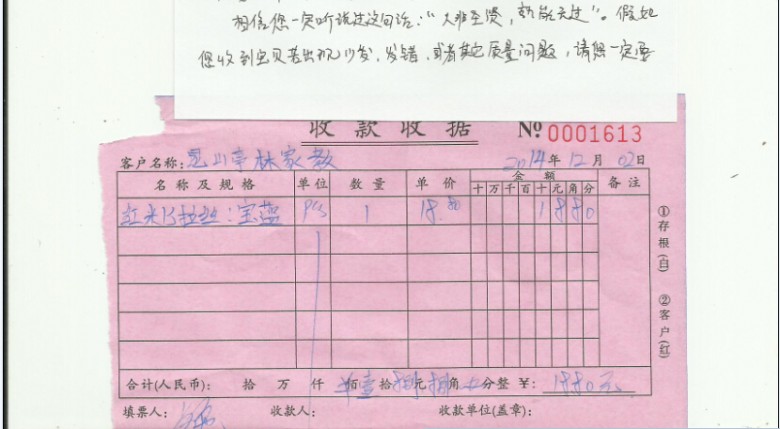 相信您一定听说过这句话："人非圣贤，孰能无过"。假如
您收到宝贝若出现少发、发错、或者其它质量问题，请您一定要
收款收据 № 0001613
客户名称：昆山亭林家教 2014年12月02日
名称及规格 单位 数量 单价 金额 备注
十万千百十元角分
红米 拉丝：宝蓝 PCS 1 18.80 1880
①存根(白) ②客户(红)
合计(人民币)： 拾 万 仟 佰壹拾捌元捌角 分整 ￥：18.80元
填票人： 收款人： 收款单位(盖章)：